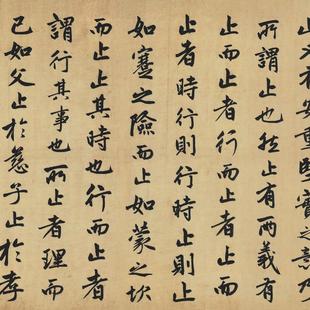 止又有安重堅實之意乃
所謂止也然止有兩義有
止而止者行而止者止而
止者時行則行時止則止
如蹇之險而止如蒙之坎
而止止其時也行而止者
謂行其事也所止者理而
已如父止於慈子止於孝